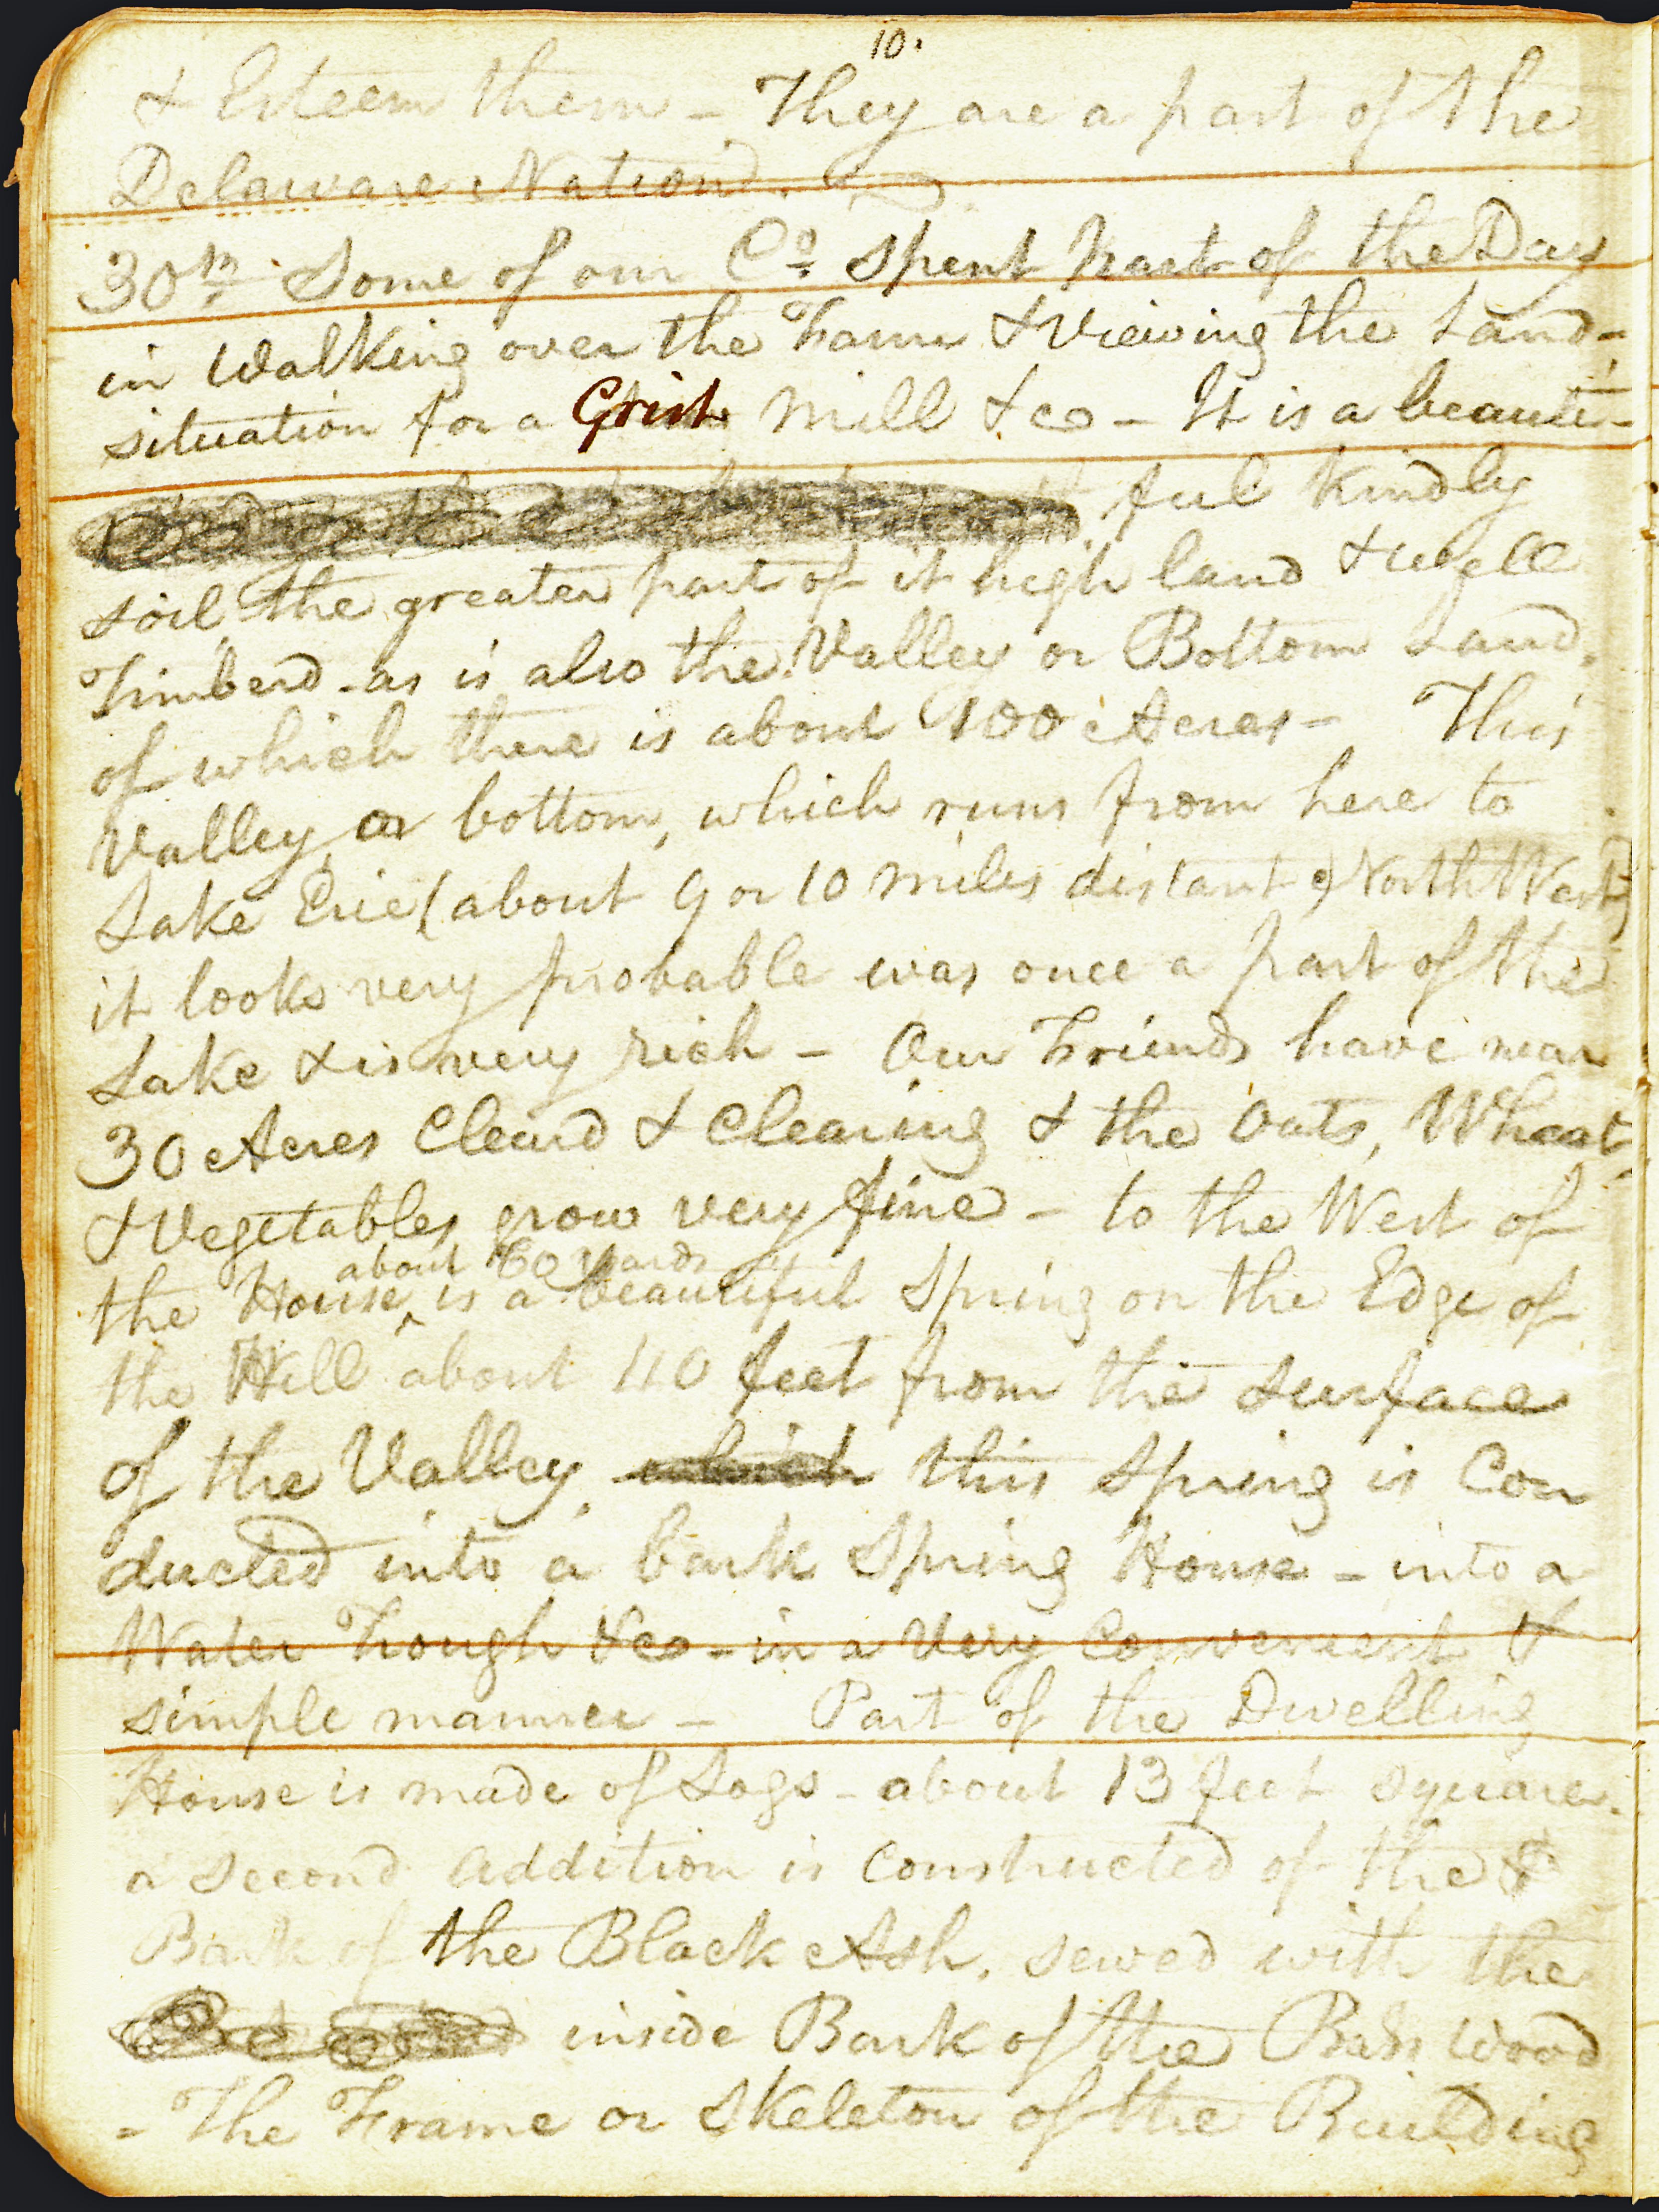 10.
& Esteem them - They are a part of the
Delaware Nation.
30th. Some of our Co. spent part of the Day
in Walking over the Farm & Viewing the Land -
situation for a Grist Mill &ca - It is a beauti-
ful kindly
soil the greater part of it high land & well
Timberd - as is also the Valley or Bottom Land,
of which there is about 100 Acres - This
Valley or bottom, which runs from here to
Lake Erie (about 9 or 10 miles distant North West)
it looks very probable was once a part of the
Lake & is very rich - Our Friends have near
30 Acres Cleard & Clearing & the Oats, Wheat
& Vegetables grow very fine - to the West of
about 60 yards
the House ^ is a beautiful Spring on the Edge of
the Hill about 40 feet from the surface
of the Valley. which this Spring is Con
ducted into a bark Spring House - into a
Water Trough &ca - in a Very Convenient &
simple manner - Part of the Dwelling
House is made of Logs - about 13 feet square.
a second addition is Constructed of the
Bark of the Black Ash. sewed with the
inside Bark of the Bass Wood
- The Frame or Skeleton of the Building